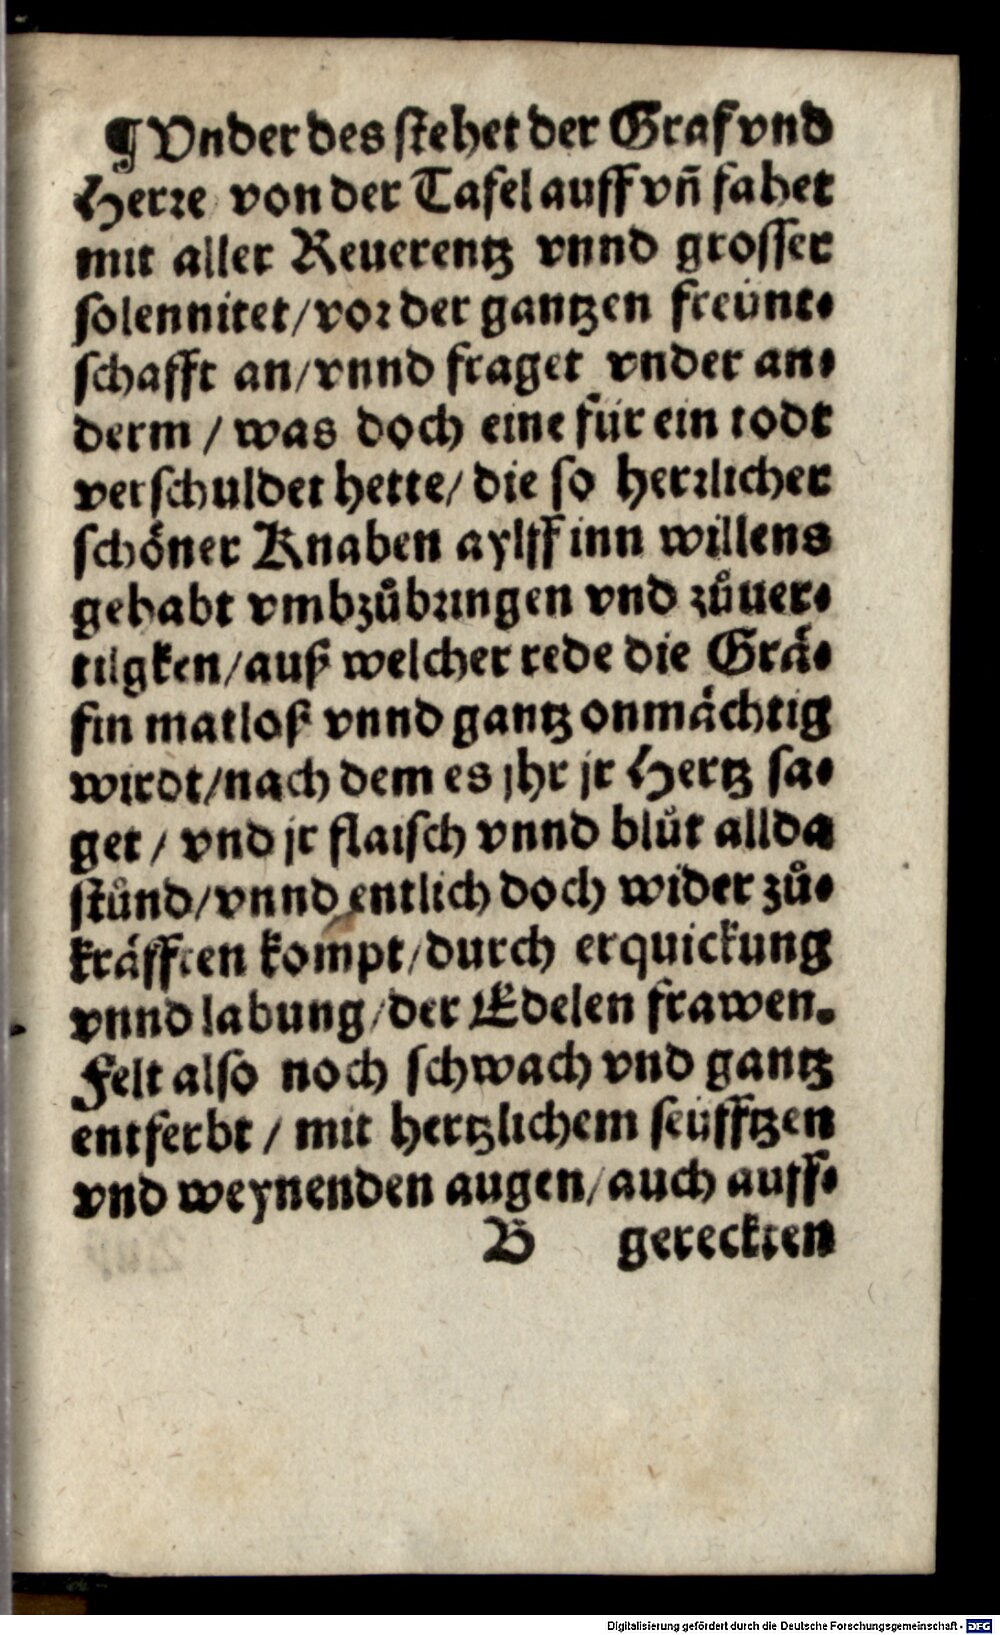 ¶ Vnder des stehet der Graf vnd
Herꝛe von der Tafel auff vñ fahet
mit aller Reuerentz vnnd grosser
solennitet/voꝛ der gantzen freünt⸗
schafft an/vnnd fraget vnder an⸗
derm / was doch eine für ein todt
verschuldet hette/ die so herꝛlicher
schöner Knaben aylff inn willens
gehabt vmbzůbꝛingen vnd zůuer⸗
tilgken/auß welcher rede die Grä⸗
fin matloß vnnd gantz onmächtig
wirdt/nach dem es jhr jr Hertz sa⸗
get / vnd jr flaisch vnnd blůt allda
stůnd/vnnd entlich doch wider zů⸗
kräfften kompt/durch erquickung
vnnd labung/der Edelen frawen.
Felt also noch schwach vnd gantz
entferbt / mit hertzlichem seüfftzen
vnd weynenden augen/auch auff⸗
B gereckten
Digitalisierung gefördert durch die Deutsche Forschungsgemeinschaft - DFG